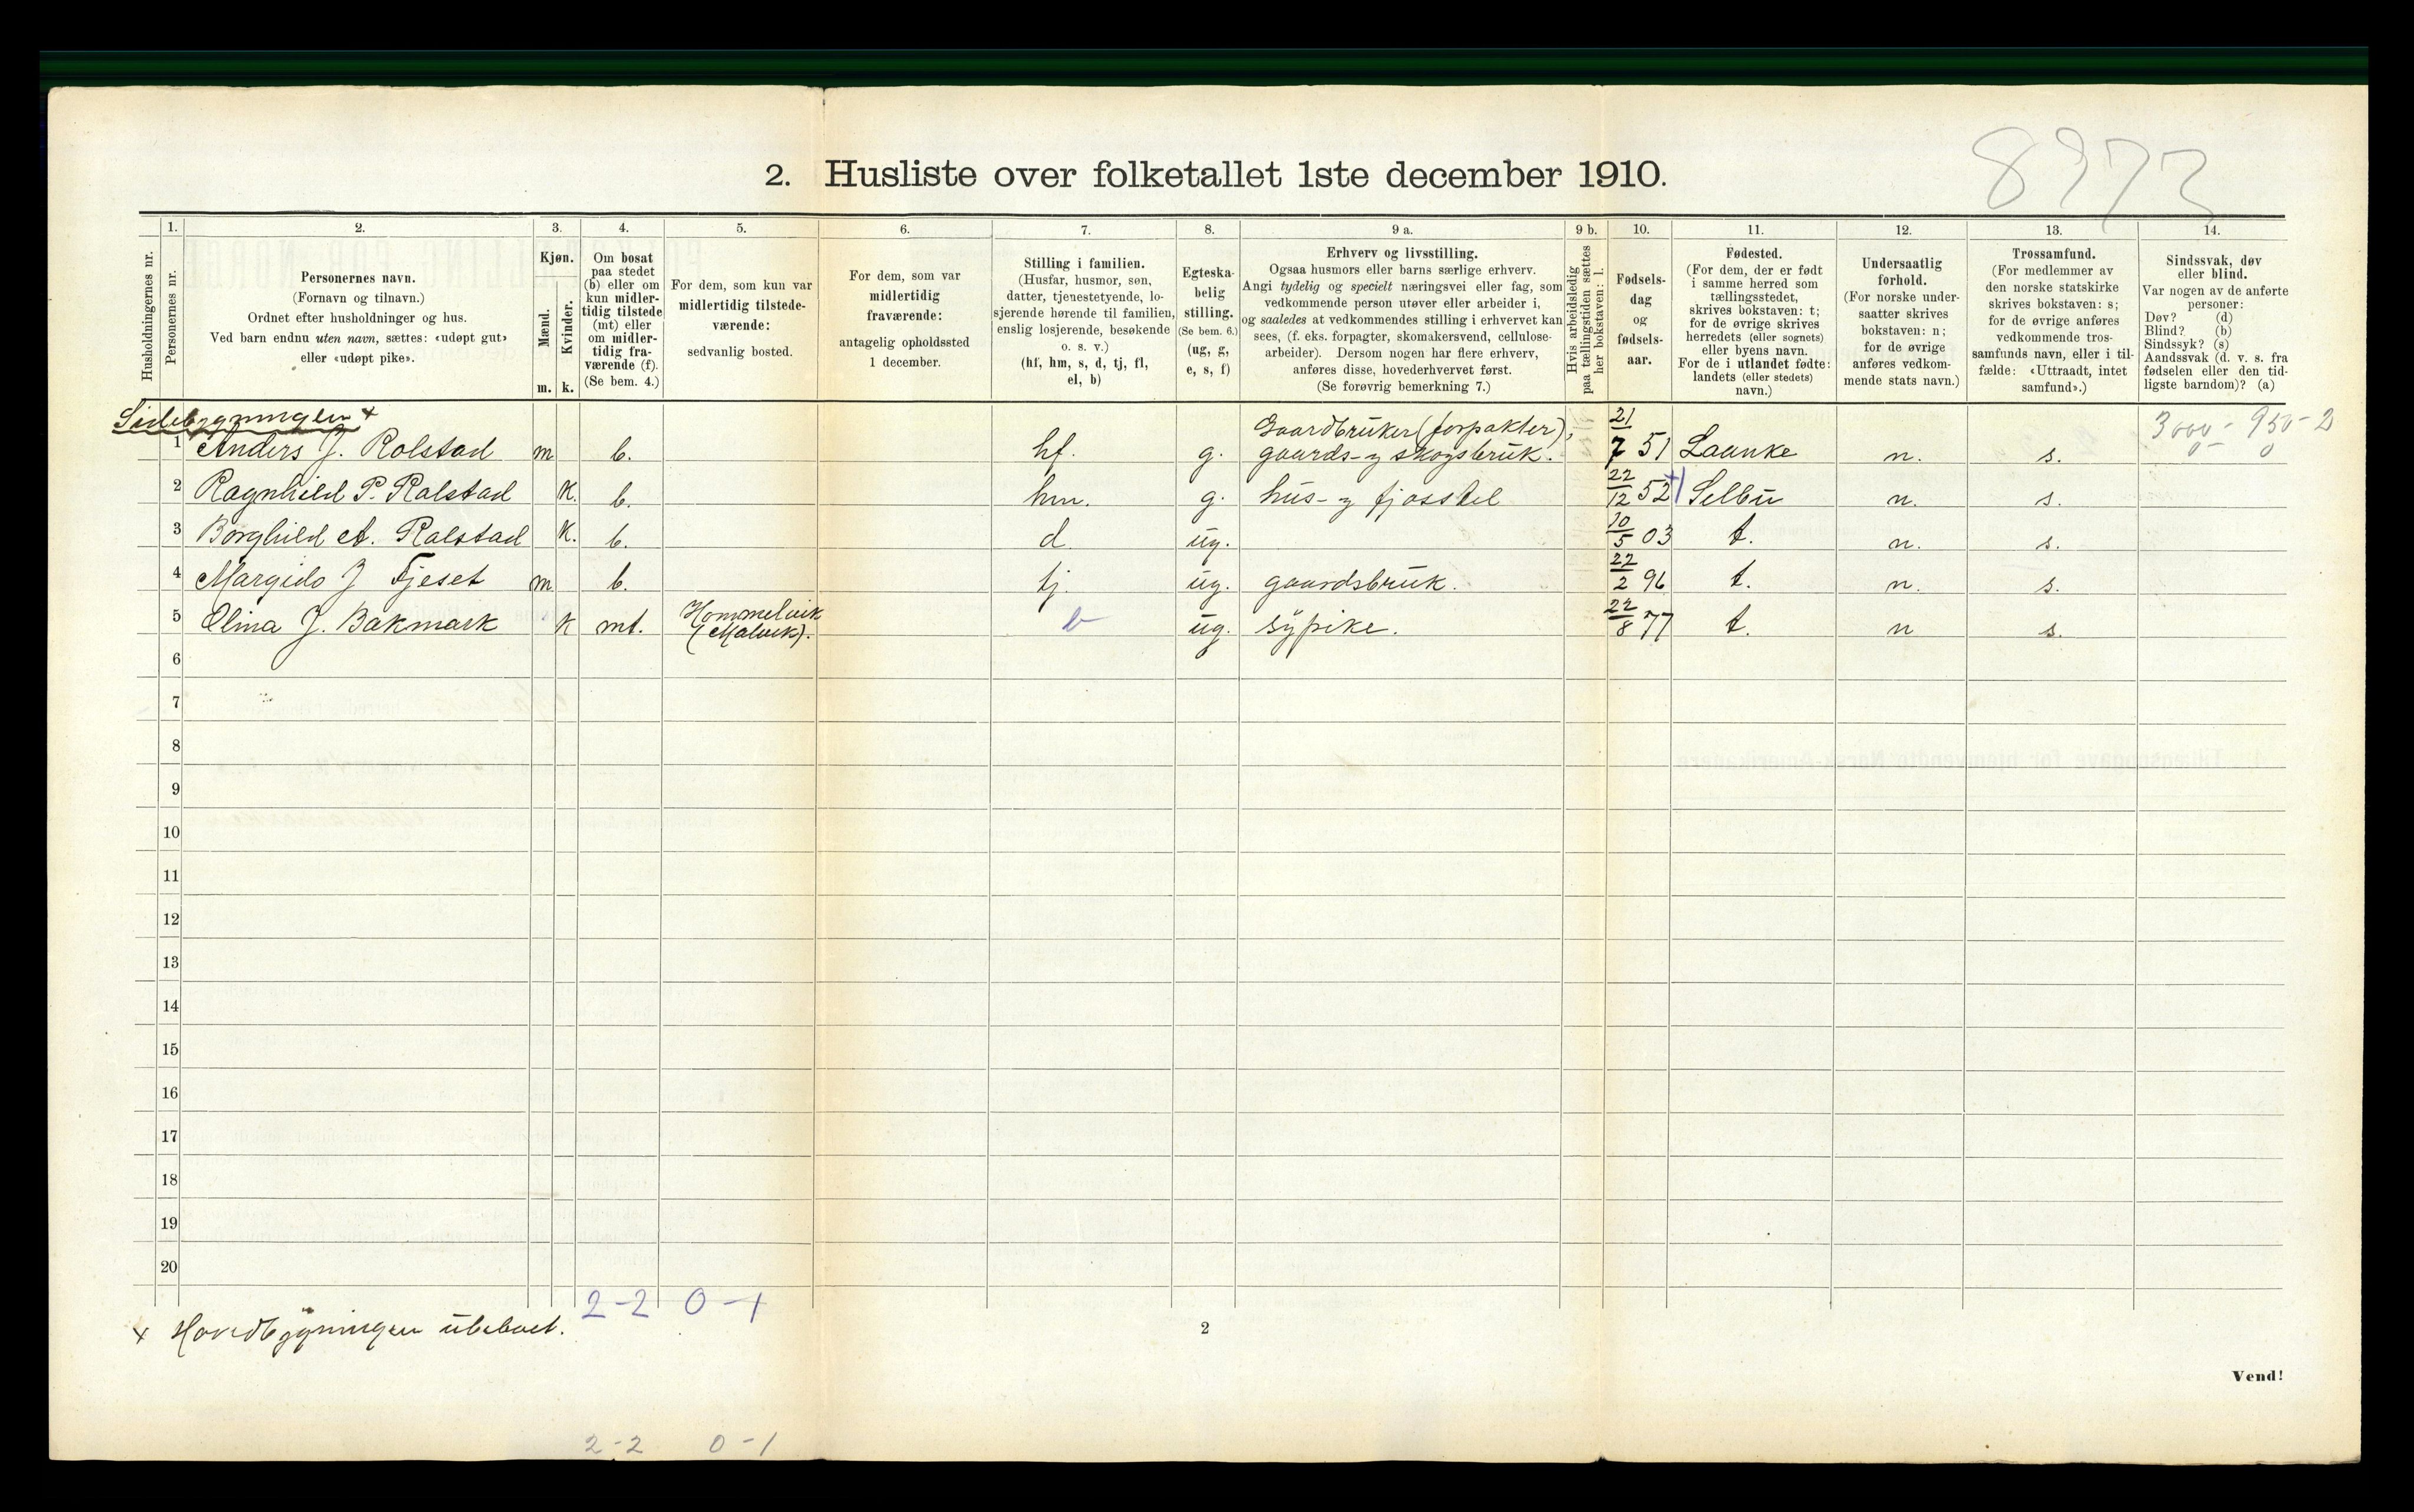 8973
2. Husliste over folketallet 1ste december 1910.
Husholdningernes nr.
1. Personernes nr.
2. Personernes navn.
(Fornavn og tilnavn.)
Ordnet efter husholdninger og hus.
Ved barn endnu uten navn, sættes: «udøpt gut»
eller «udøpt pike».
3. Kjøn.
Mænd. m.
Kvinder. k.
4. Om bosat
paa stedet
(b) eller om
kun midler-
tidig tilstede
(mt) eller
om midler-
tidig fra-
værende (f).
(Se bem. 4.)
5. For dem, som kun var
midlertidig tilstede-
værende:
sedvanlig bosted.
6. For dem, som var
midlertidig
fraværende:
antagelig opholdssted
1 december.
7. Stilling i familien.
(Husfar, husmor, søn,
datter, tjenestetyende, lo-
sjerende hørende til familien,
enslig losjerende, besøkende
o. s. v.)
(hf, hm, s, d, tj, fl,
el, b)
8. Egteska-
belig
stilling.
(Se bem. 6.)
(ug, g,
e, s, f)
9 a. Erhverv og livsstilling.
Ogsaa husmors eller barns særlige erhverv.
Angi tydelig og specielt næringsvei eller fag, som
vedkommende person utøver eller arbeider i,
og saaledes at vedkommendes stilling i erhvervet kan
sees, (f. eks. forpagter, skomakersvend, cellulose-
arbeider). Dersom nogen har flere erhverv,
anføres disse, hovederhvervet først.
(Se forøvrig bemerkning 7.)
9 b. Hvis arbeidsledig
paa tællingstiden sættes
her bokstaven: l.
10. Fødsels-
dag
og
fødsels-
aar.
11. Fødested.
(For dem, der er født
i samme herred som
tællingsstedet,
skrives bokstaven: t;
for de øvrige skrives
herredets (eller sognets)
eller byens navn.
For de i utlandet fødte:
landets (eller stedets)
navn.)
12. Undersaatlig
forhold.
(For norske under-
saatter skrives
bokstaven: n;
for de øvrige
anføres vedkom-
mende stats navn.)
13. Trossamfund.
(For medlemmer av
den norske statskirke
skrives bokstaven: s;
for de øvrige anføres
vedkommende tros-
samfunds navn, eller i til-
fælde: «Uttraadt, intet
samfund».)
14. Sindssvak, døv
eller blind.
Var nogen av de anførte
personer:
Døv? (d)
Blind? (b)
Sindssyk? (s)
Aandssvak (d. v. s. fra
fødselen eller den tid-
ligste barndom)? (a)
Sidebygningen +
1 Anders J. Rolstad m b. hf. g. Gaardbruker (forpakter), gaards- og skogsbruk. 21/7 51 Laanke n. s. 3000 - 950 - 2
2 Ragnhild P. Rolstad K. b. hm. g. hus- og fjosstel 22/12 52 Selbu n. s.
3 Borghild A. Rolstad K. b. d. ug. 10/5 03 t. n. s.
4 Margido J Fjeset m b. tj. ug. gaardsbruk. 22/2 96 t. n. s.
5 Olina J. Bakmark k mt. Hommelvik (Malvik). b ug. sypike. 22/8 77 t. n s.
6
7
8
9
10
11
12
13
14
15
16
17
18
19
20
2-2 0-1
+ Hovedbygningen ubeboet.
2
Vend!
2-2 0-1